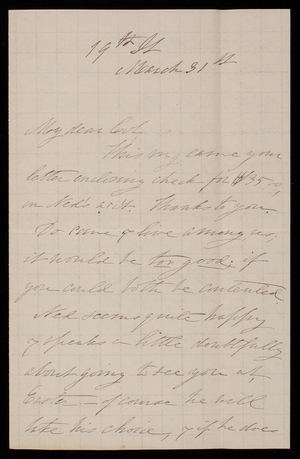 19th St
March 31st
My dear Col.
This mg came your
letter enclosing check for $35.00
in Ned's acct. Thanks to you.
Do come & live among us;
it would be too good; if
you could both be contented.
Ned seems quite happy
& speaks a little doubtfully
about going to see you at
Easter – of course he will
take his choice, & if he does